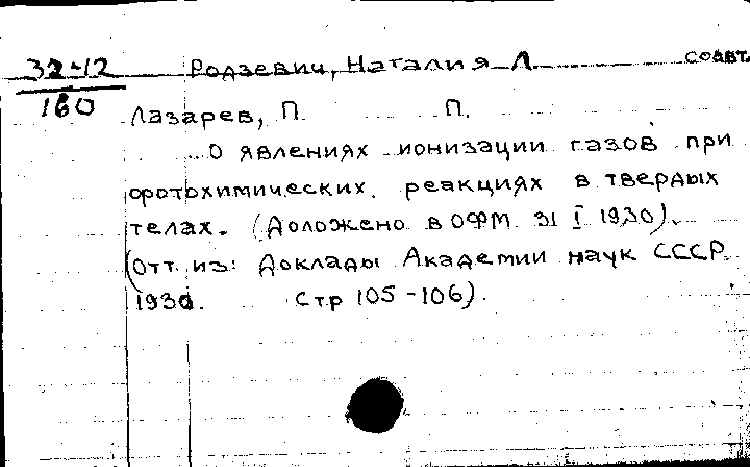 32-12 Родзевич, Наталия Л. соавт.
160 Лазарев, П. П.
О явлениях ионизации газов при
фотохимических реакциях в твердых
телах. (Доложено в ОФМ 31 I 1930).
(Отт. из: Доклады Академии наук СССР
1930. Стр 105-106).